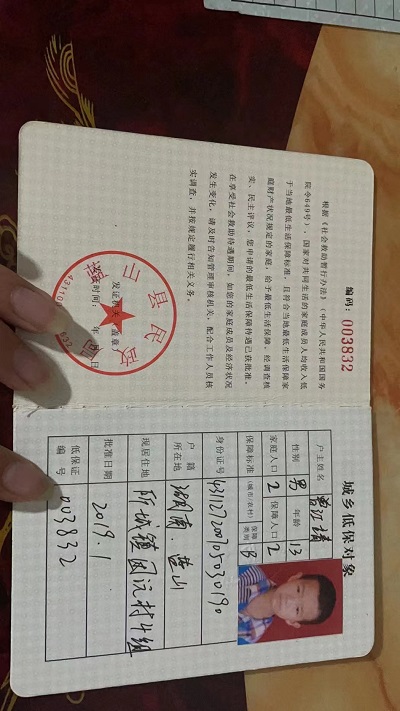 编码：003832
根据《社会救助暂行办法》（中华人民共和国国务
院令649号），国家对共同生活的家庭成员人均收入低
于当地最低生活保障标准，且符合当地最低生活保障家
庭财产状况规定的家庭，给予最低生活保障。经调查核
实、民主评议，您申请的最低生活保障待遇已获批准。
在享受社会救助待遇期间，如您的家庭成员及经济状况
发生变化，请及时告知管理审核机关，配合工作人员核
实调查，并按规定履行相关义务。
发证机关：盖章
发证时间： 年 月 日
山县民政
城乡低保对象
户主姓名
性别 男 年龄 13
家庭人口 2 保障人口 2
保障标准 （城市/农村） 保障类别 B
身份证号 431127200705030190
户籍所在地 湖南.蓝山
现居住地 所城镇 村4组
批准日期 2019.1
低保证编号 003832